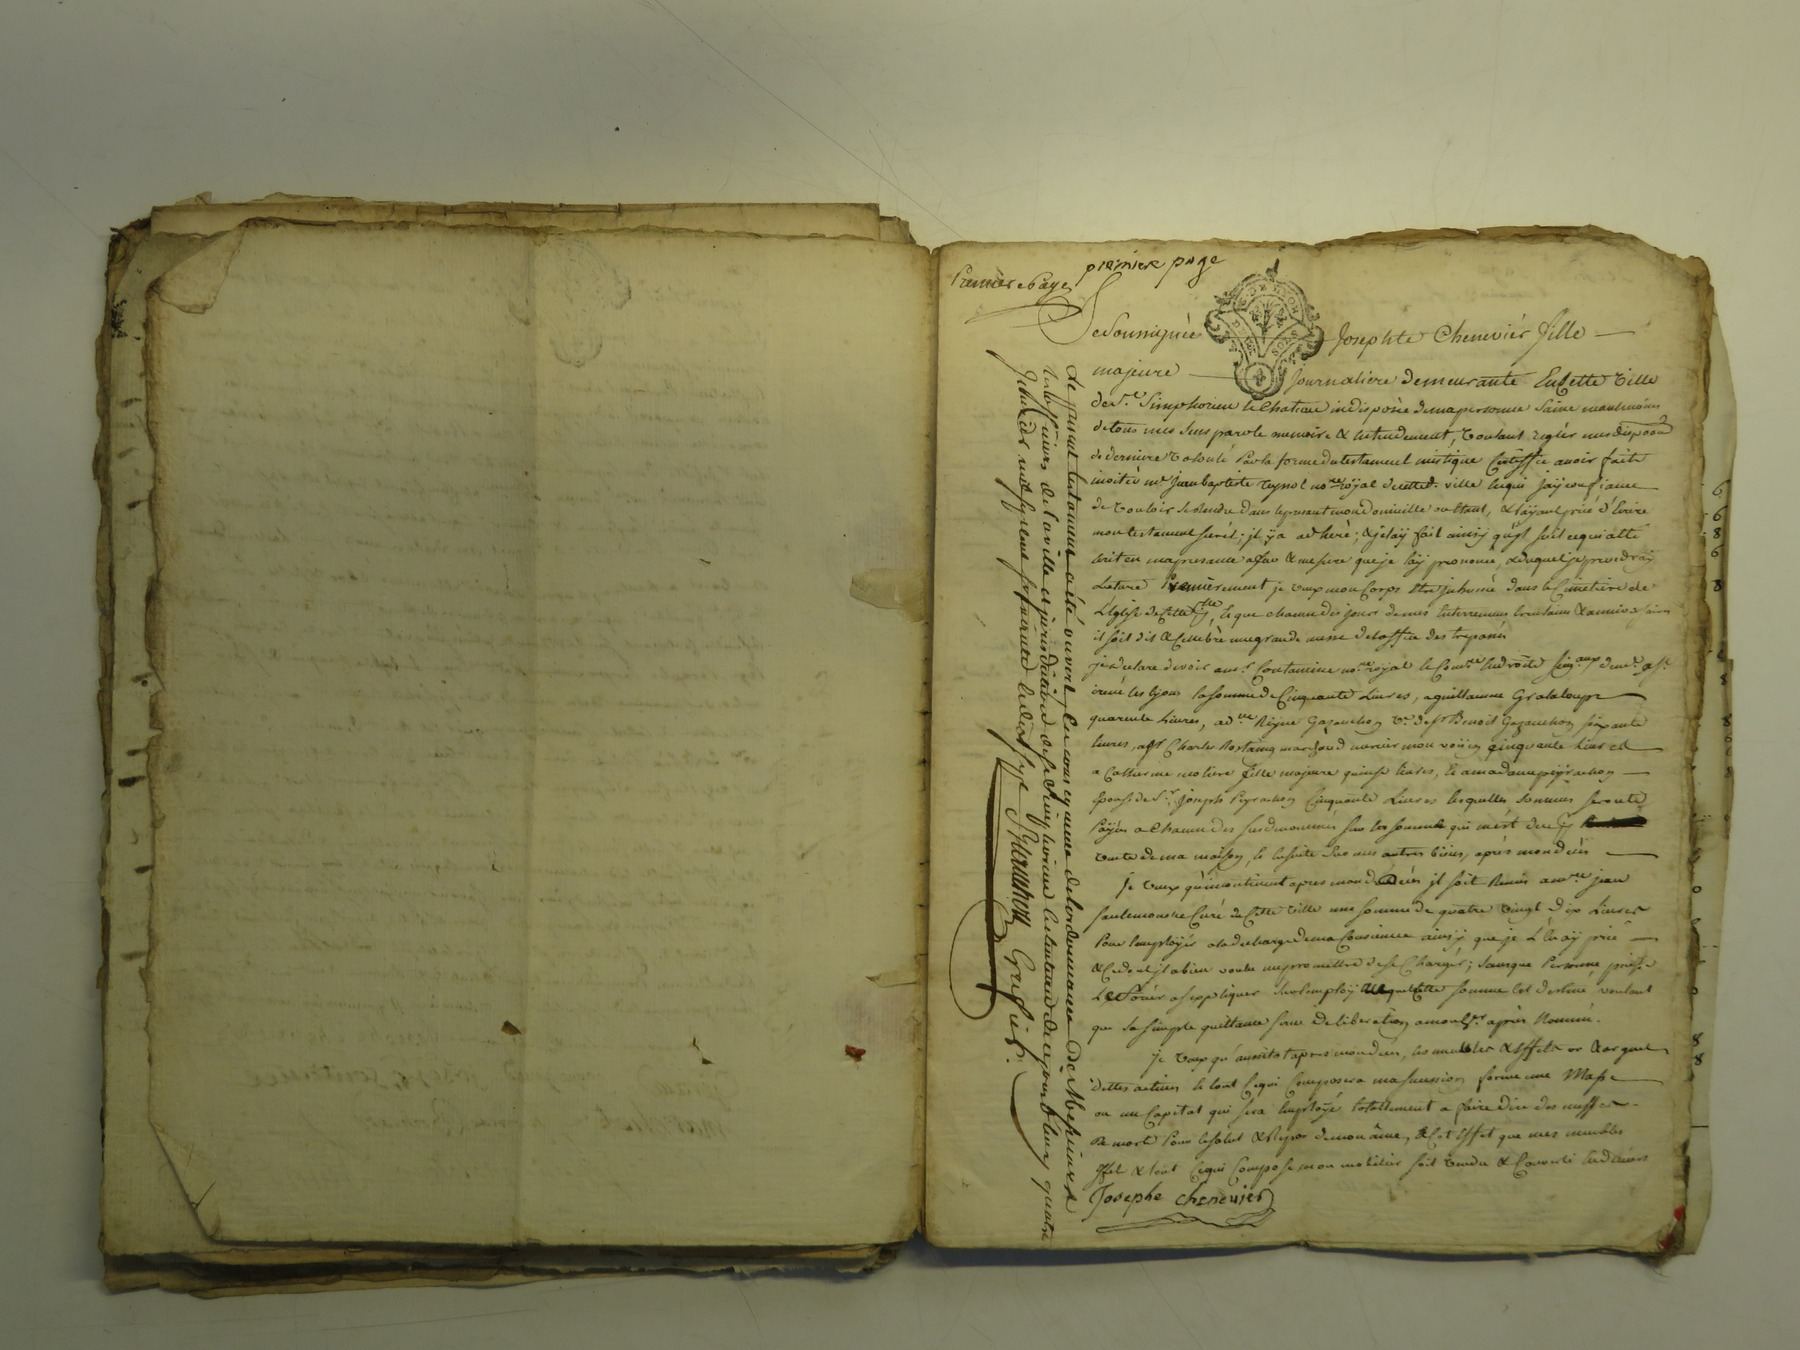 premiere page
Premiere Page
Je Soussignée Josephte Chenevièr fille
majeure Journaliere demeurante En Cette Ville
de St. Simphorien le Chateau indisposée de ma personne Saine neanmoins
de tous mes Sens parole memoire & Entendement, Voulant regler mes dispoons
de derniere Volonté Par la forme du testament mistique Certiffie avoir fait
inviter me Jean baptiste reynol nore royal de cette d. ville en qui jay confiance
de Vouloir Se rendre dans le present mon domicille ou Etant, & layant prié d'Ecrire
mon testament Secret; jl y a adheré; & je lay fait ainsy quil suit ce qui a Eté
Ecrit en ma presence a fur & mesure que je lay prononcé, & duquel je prendray
Lecture Premierement je veux mon Corps Etre jnhumé dans le Cimetiere de
L'Eglise de Cette Vlle, Et que chacun des jours de mes Enterrement trentain & anniversaire
il soit dit & Celebré une grande messe de loffice des trepassés
je declare devoir au sr. Contamine nore royal
la somme de Cinquante Livres, a guillaume Grataloupe
quarente Livres, a d Reyne Gazanchon Ve. de sr Benoit Gazanchon soixante
livres, a sr Charles Rostaing marchand mercier mon voisin cinquante Livres
a Catherine motiere fille majeure quinse livres, Et a madame peyrachon
Epouse de Sr. joseph Peyrachon Cinquante Livres lesquelles Sommes seronts
Payées a Chacun des susdenommés sur les sommes qui
vente de ma maison, Et Ensuite Sur mes autres biens, après mon decès
je Veux qu'incontinent apres mon decès jl soit Remis a mre jean
Curé de Cette Ville une somme de quatre Vingt dix Livres
Pour L'employér a la decharge de ma Consience ainsy que je L'En ay prié
& Ce dont jl a bien voulu me promettre de se Charger; sans que Personne puisse
somme Est destiné voulant
que Sa simple quittance serve de liberation a mon hr. après Nommé.
je Veux qu'aussitot apres mon decès, les meubles & Effets or & argent
dettes actives Et tout Ce qui Composera ma succession forme une Masse
ou un Capital qui sera Employé totallement a faire dire des messes
de mort Pour le salut & Repos de mon âme, & a Cet Effet que mes meubles
Effet & tout Ce qui Compose mon mobilier soit Vendu & Converti En deniers
Josephe chenevier
Le present testament a été ouvert En consequence de lordonnance de Messieurs
de la ville et jurisdiction de St Simphorien le chateau de ce jourdhuy quatre
Greffier.